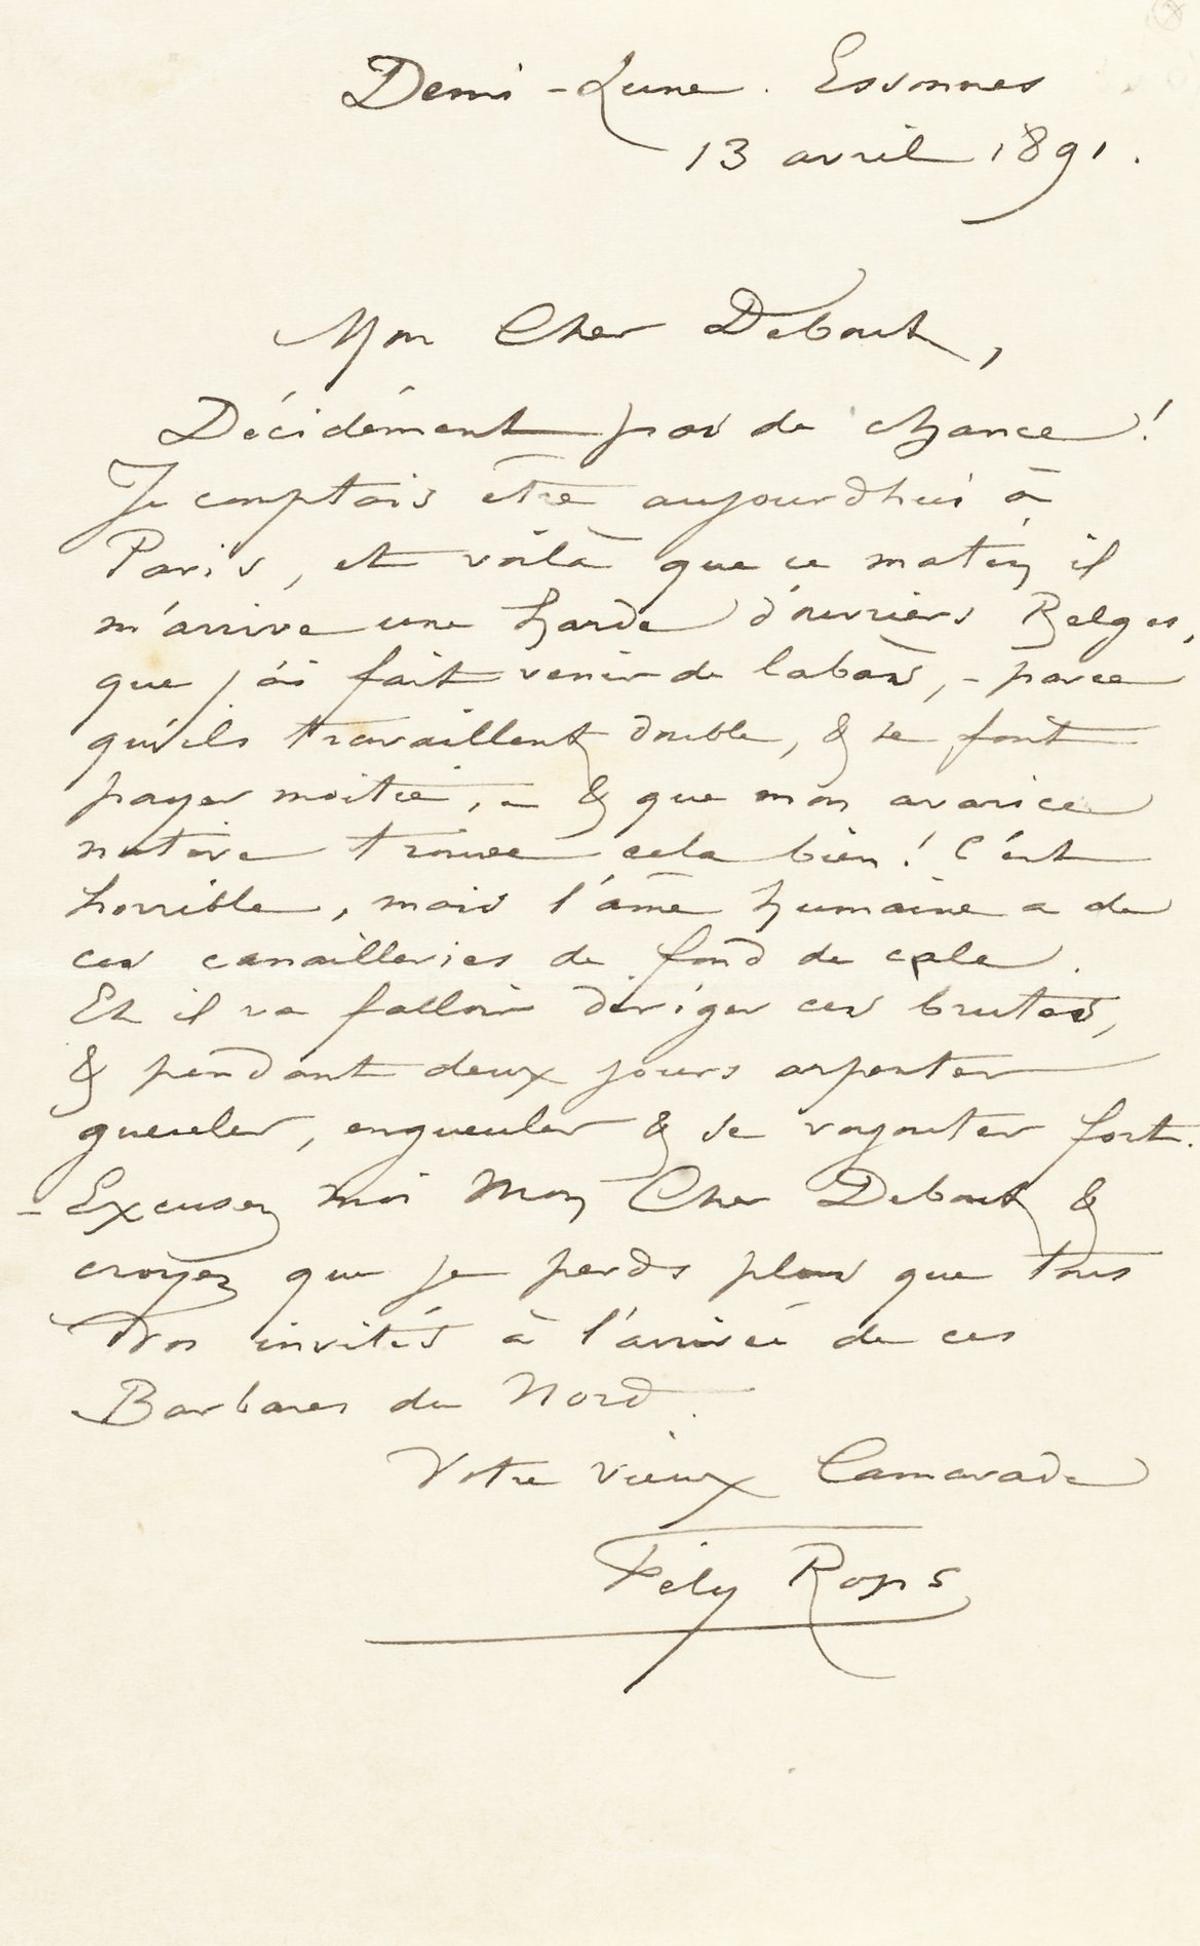 Demi-Lune. Essonnes
13 avril 1891.
Mon Cher Debout,
Décidément pas de chance!
Je comptais être aujourd'hui à
Paris, et voilà que ce matin il
m'arrive une harde d'ouvriers Belges,
que j'ai fait venir de labàs, - parce
qu'ils travaillent double, & se font
payer moitié, - & que mon avarice
native trouve cela bien! C'est
horrible, mais l'âme humaine a de
ces canailleries de fond de cale.
Et il va falloir diriger ces brutes,
& pendant deux jours arpenter
gueuler, engueuler & se voyouter fort.
- Excusez moi Mon Cher Debout &
croyez que je perds plus que tous
Vos invités à l'arrivée de ces
Barbares du Nord.
Votre vieux Camarade
Fély Rops